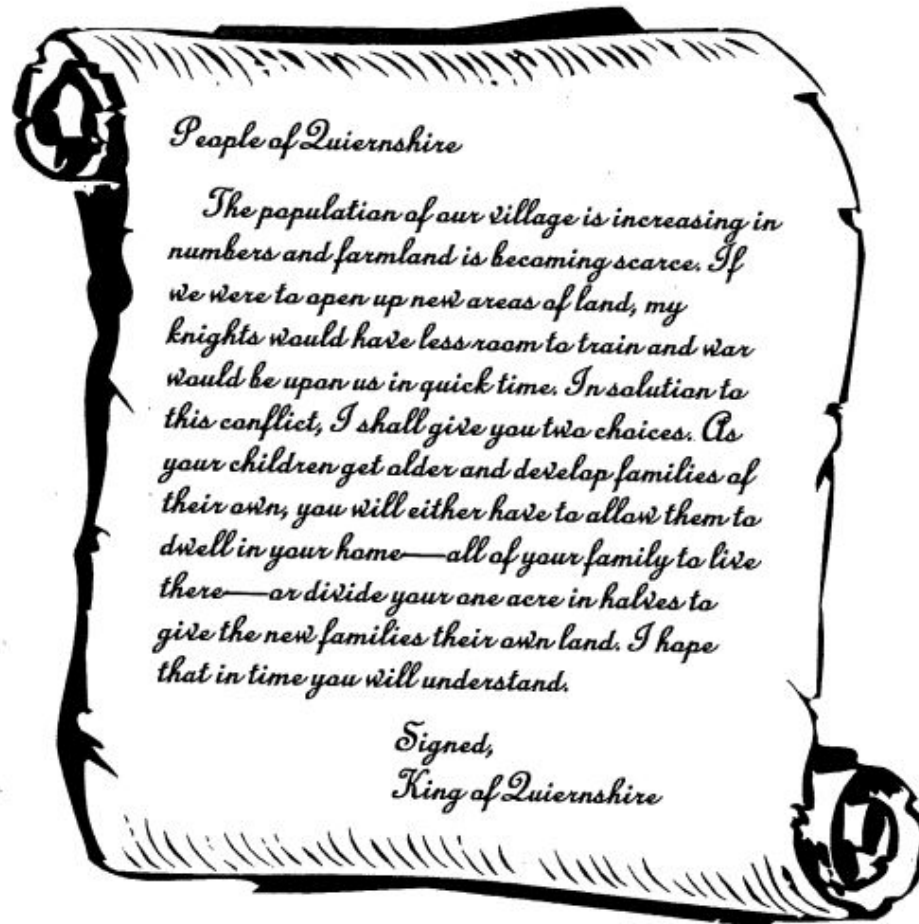 People of Quiernshire
The population of our village is increasing in
numbers and farmland is becoming scarce. If
we were to open up new areas of land, my
knights would have less room to train and war
would be upon us in quick time. In solution to
this conflict, I shall give you two choices. As
your children get older and develop families of
their own, you will either have to allow them to
dwell in your home—all of your family to live
there—or divide your one acre in halves to
give the new families their own land. I hope
that in time you will understand.
Signed,
King of Quiernshire